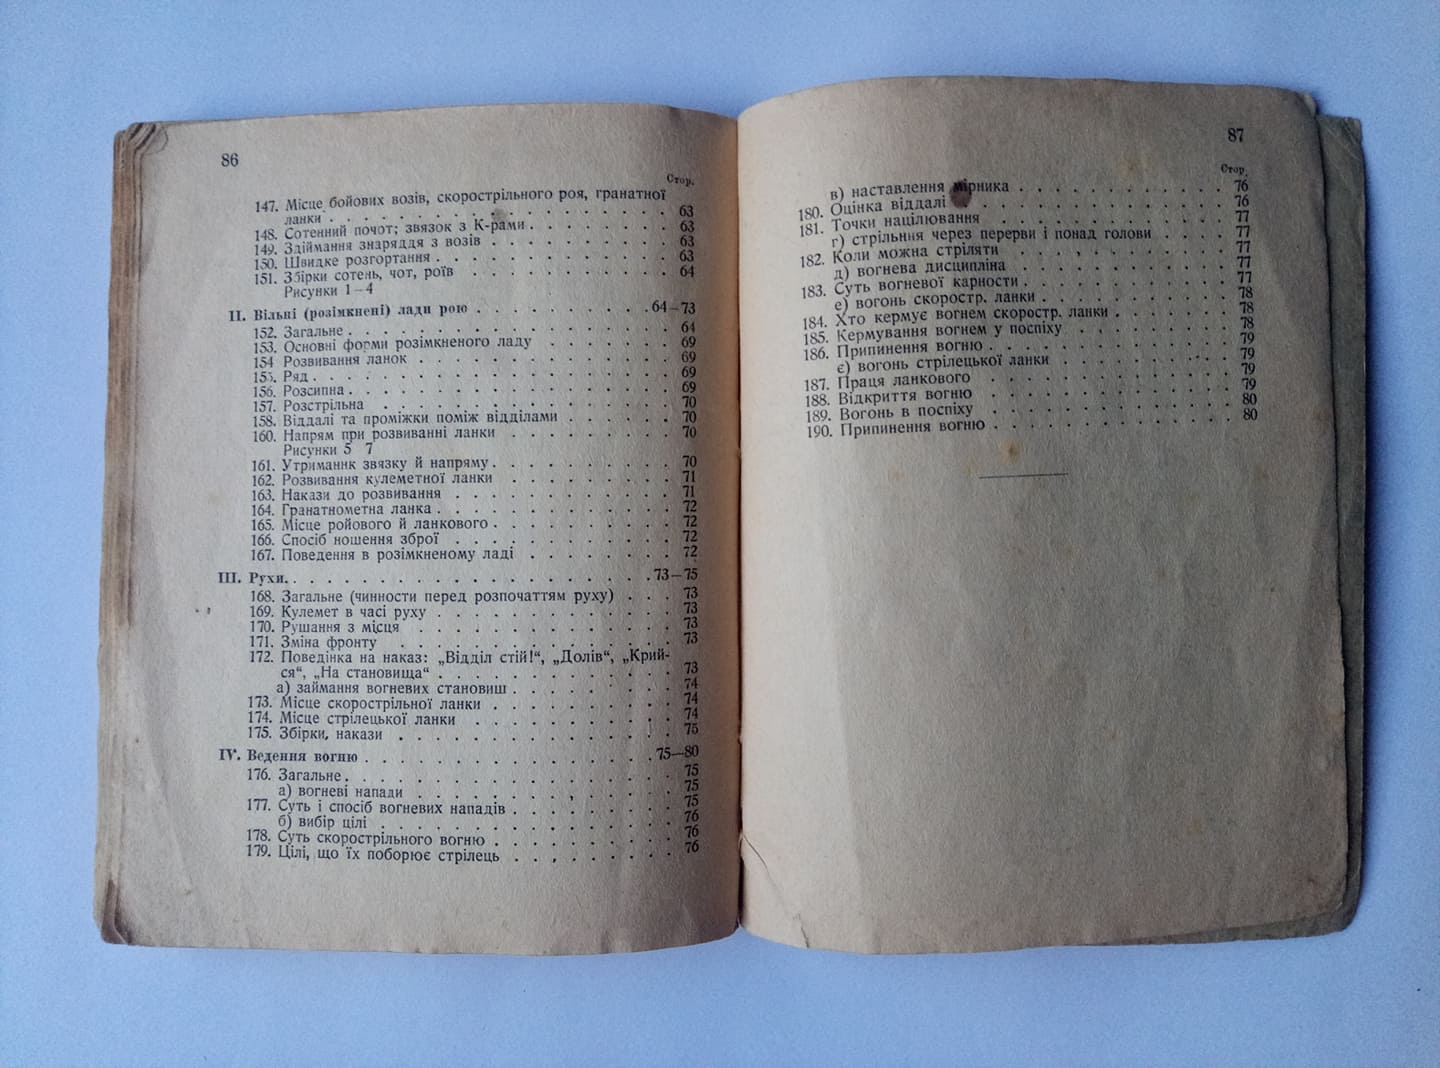 86
Стор.
147. Місце бойових возів, скорострільного роя, гранатної
ланки . . . . . . . . . . . . . . . . . 63
148. Сотенний почот; звязок з К-рами . . . . . . . . 63
149. Здіймання знаряддя з возів . . . . . . . . . . 63
150. Швидке розгортання . . . . . . . . . . . . 63
151. Збірки сотень, чот, роїв . . . . . . . . . . . 64
Рисунки 1—4
II. Вільні (розімкнені) лади рою . . . . . . . . . 64—73
152. Загальне . . . . . . . . . . . . . . . . 64
153. Основні форми розімкненого ладу . . . . . . . 69
154 Розвивання ланок . . . . . . . . . . . . . 69
155. Ряд . . . . . . . . . . . . . . . . . . 69
156. Розсипна . . . . . . . . . . . . . . . . 69
157. Розстрільна . . . . . . . . . . . . . . . 70
158. Віддалі та проміжки поміж відділами . . . . . . 70
160. Напрям при розвиванні ланки . . . . . . . . . 70
Рисунки 5 7
161. Утриманнк звязку й напряму . . . . . . . . . 70
162. Розвивання кулеметної ланки . . . . . . . . . 71
163. Накази до розвивання . . . . . . . . . . . 71
164. Гранатнометна ланка . . . . . . . . . . . . 72
165. Місце ройового й ланкового . . . . . . . . . 72
166. Спосіб ношення зброї . . . . . . . . . . . 72
167. Поведення в розімкненому ладі . . . . . . . . 72
III. Рухи. . . . . . . . . . . . . . . . . . . 73—75
168. Загальне (чинности перед розпочаттям руху) . . . 73
169. Кулемет в часі руху . . . . . . . . . . . . 73
170. Рушання з місця . . . . . . . . . . . . . 73
171. Зміна фронту . . . . . . . . . . . . . . 73
172. Поведінка на наказ: „Відділ стій!“, „Долів“, „Крий-
ся“, „На становища“ . . . . . . . . . . . . 73
а) займання вогневих становиш . . . . . . . . 74
173. Місце скорострільної ланки . . . . . . . . . 74
174. Місце стрілецької ланки . . . . . . . . . . 74
175. Збірки, накази . . . . . . . . . . . . . . 75
IV. Ведення вогню . . . . . . . . . . . . . . . 75—80
176. Загальне . . . . . . . . . . . . . . . . 75
а) вогневі напади . . . . . . . . . . . . . 75
177. Суть і спосіб вогневих нападів . . . . . . . . 75
б) вибір цілі . . . . . . . . . . . . . . . 76
178. Суть скорострільного вогню . . . . . . . . . 76
179. Цілі, що їх поборює стрілець . . . . . . . . . 76
87
Стор.
в) наставлення мірника . . . . . . . . . . . 76
180. Оцінка віддалі . . . . . . . . . . . . . . 76
181. Точки націлювання . . . . . . . . . . . . 77
г) стрільня через перерви і понад голови . . . . 77
182. Коли можна стріляти . . . . . . . . . . . 77
д) вогнева дисципліна . . . . . . . . . . . 77
183. Суть вогневої карности . . . . . . . . . . . 77
е) вогонь скоростр. ланки . . . . . . . . . . 78
184. Хто кермує вогнем скоростр. ланки . . . . . . . 78
185. Кермування вогнем у поспіху . . . . . . . . . 78
186. Припинення вогню . . . . . . . . . . . . . 79
є) вогонь стрілецької ланки . . . . . . . . . 79
187. Праця ланкового . . . . . . . . . . . . . 79
188. Відкриття вогню . . . . . . . . . . . . . 79
189. Вогонь в поспіху . . . . . . . . . . . . . 80
190. Припинення вогню . . . . . . . . . . . . . 80